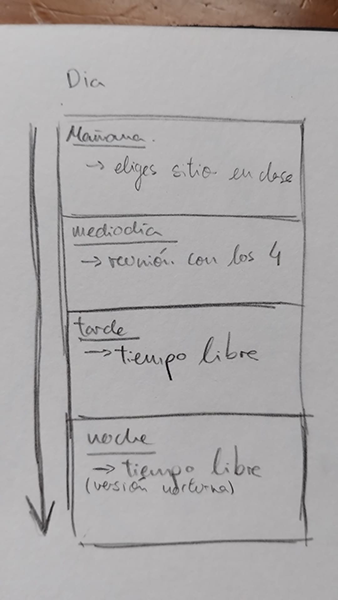 Dia
Mañana.
→ eliges sitio en clase
mediodía
→ reunión con los 4
tarde
→ tiempo libre
noche
→ tiempo libre
(versión nocturna)